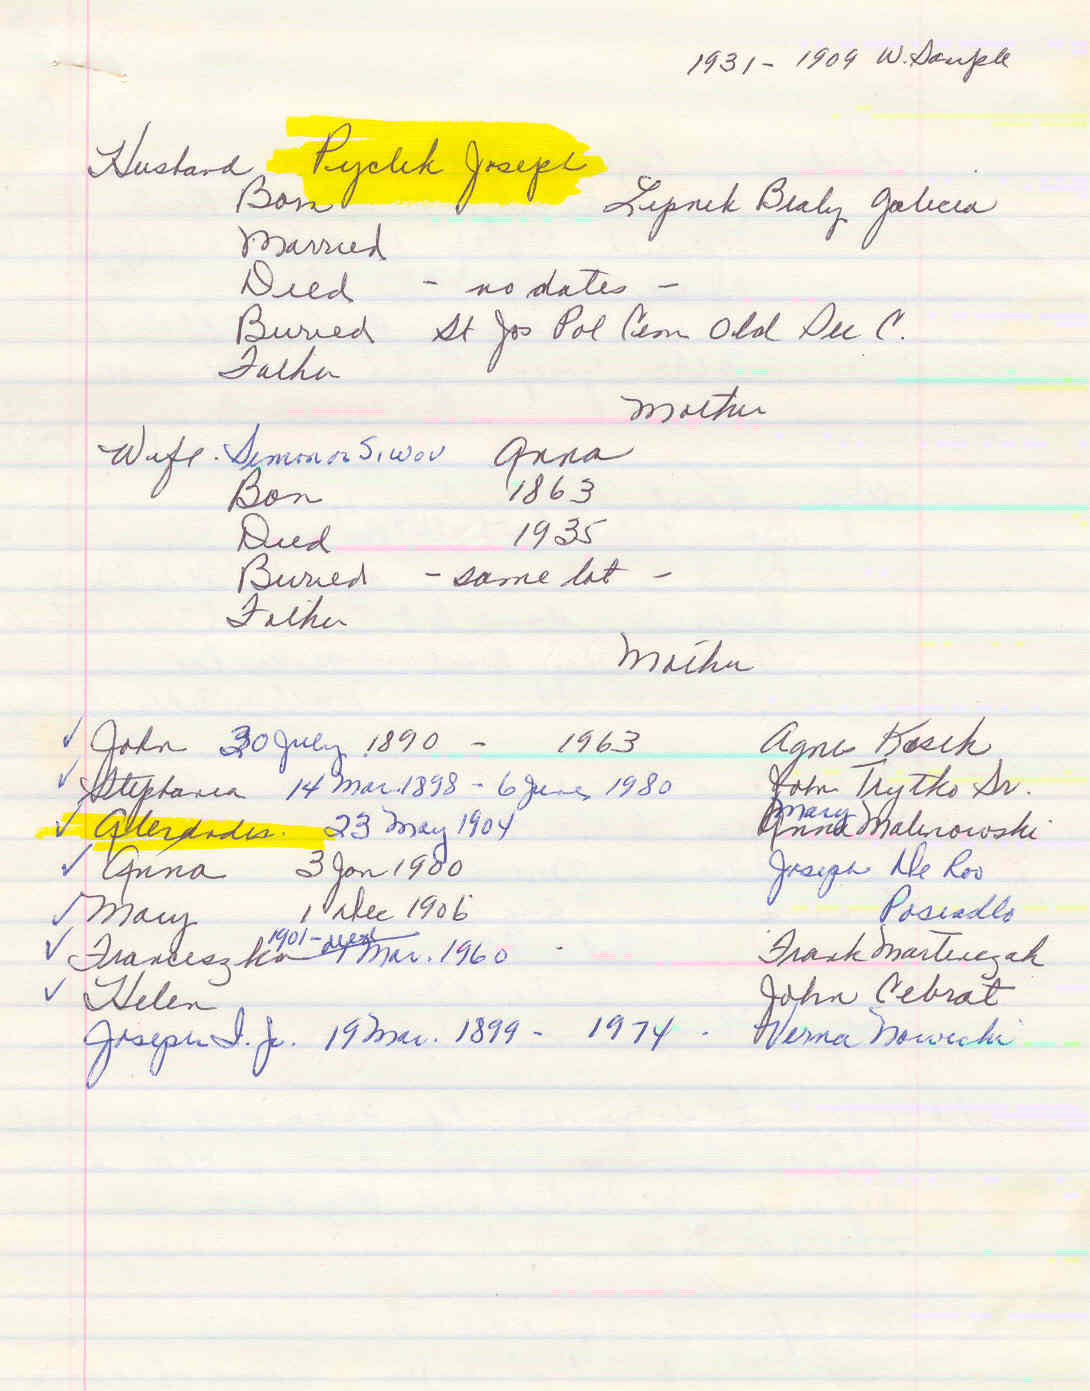 1931 - 1909 W. Sample
Husband Pyclik Joseph
Born Lipnik Bialy Galicia
Married
Died - no dates -
Buried St Jos Pol Cem Old Sec C.
Father
Mother
Wife. Simon or Siwov Anna
Born 1863
Died 1935
Buried - same lot -
Father
Mother
✓ John 30 July 1890 - 1963 Agnes Kosek
✓ Stephania 14 Mar. 1898 - 6 June 1980 John Trytko Sr.
✓ 23 May 1904 Mary Anna Malinowski
✓ Anna 3 Jan 1900 Joseph De Roo
✓ Mary 1 Dec 1906 Posiadlo
✓ Franceszka 1901 - Mar. 1960 Frank Martinczak
✓ Helen John Cebrat
Joseph I. Jr. 19 Mar. 1899 - 1974 - Verna Nowicki